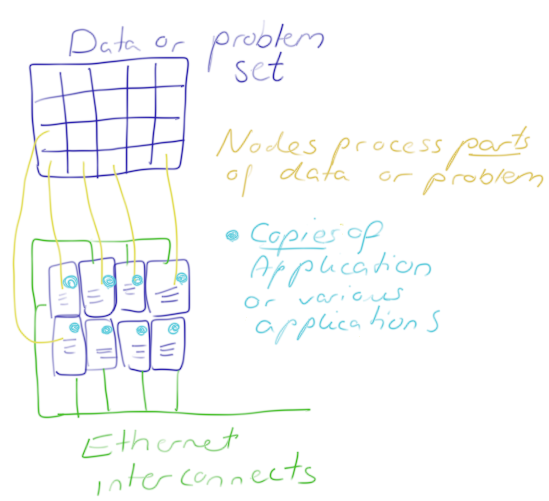 Data or problem
set
Nodes process parts
of data or problem
Copies of
Application
or various
applications
Ethernet
interconnects